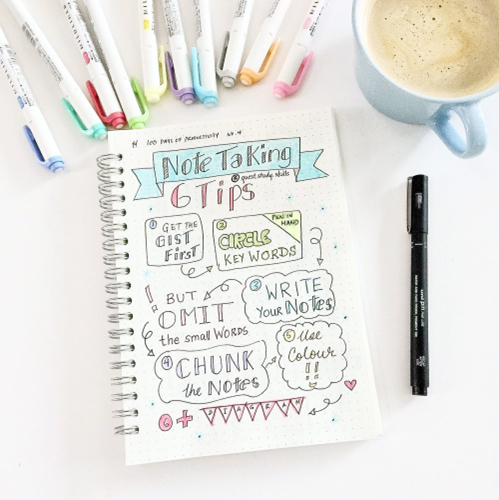 100 DAYS OF PRODUCTIVITY No. 4
Note Taking
@ quest.study.skills
6 Tips
1 GET THE
GIST
First
2 PEN IN
HAND
CIRCLE
KEY WORDS
3 WRITE
Your Notes
! BUT
OMIT
the small WORDS
4 CHUNK
the Notes
5 Use
Colour
!!
6 +